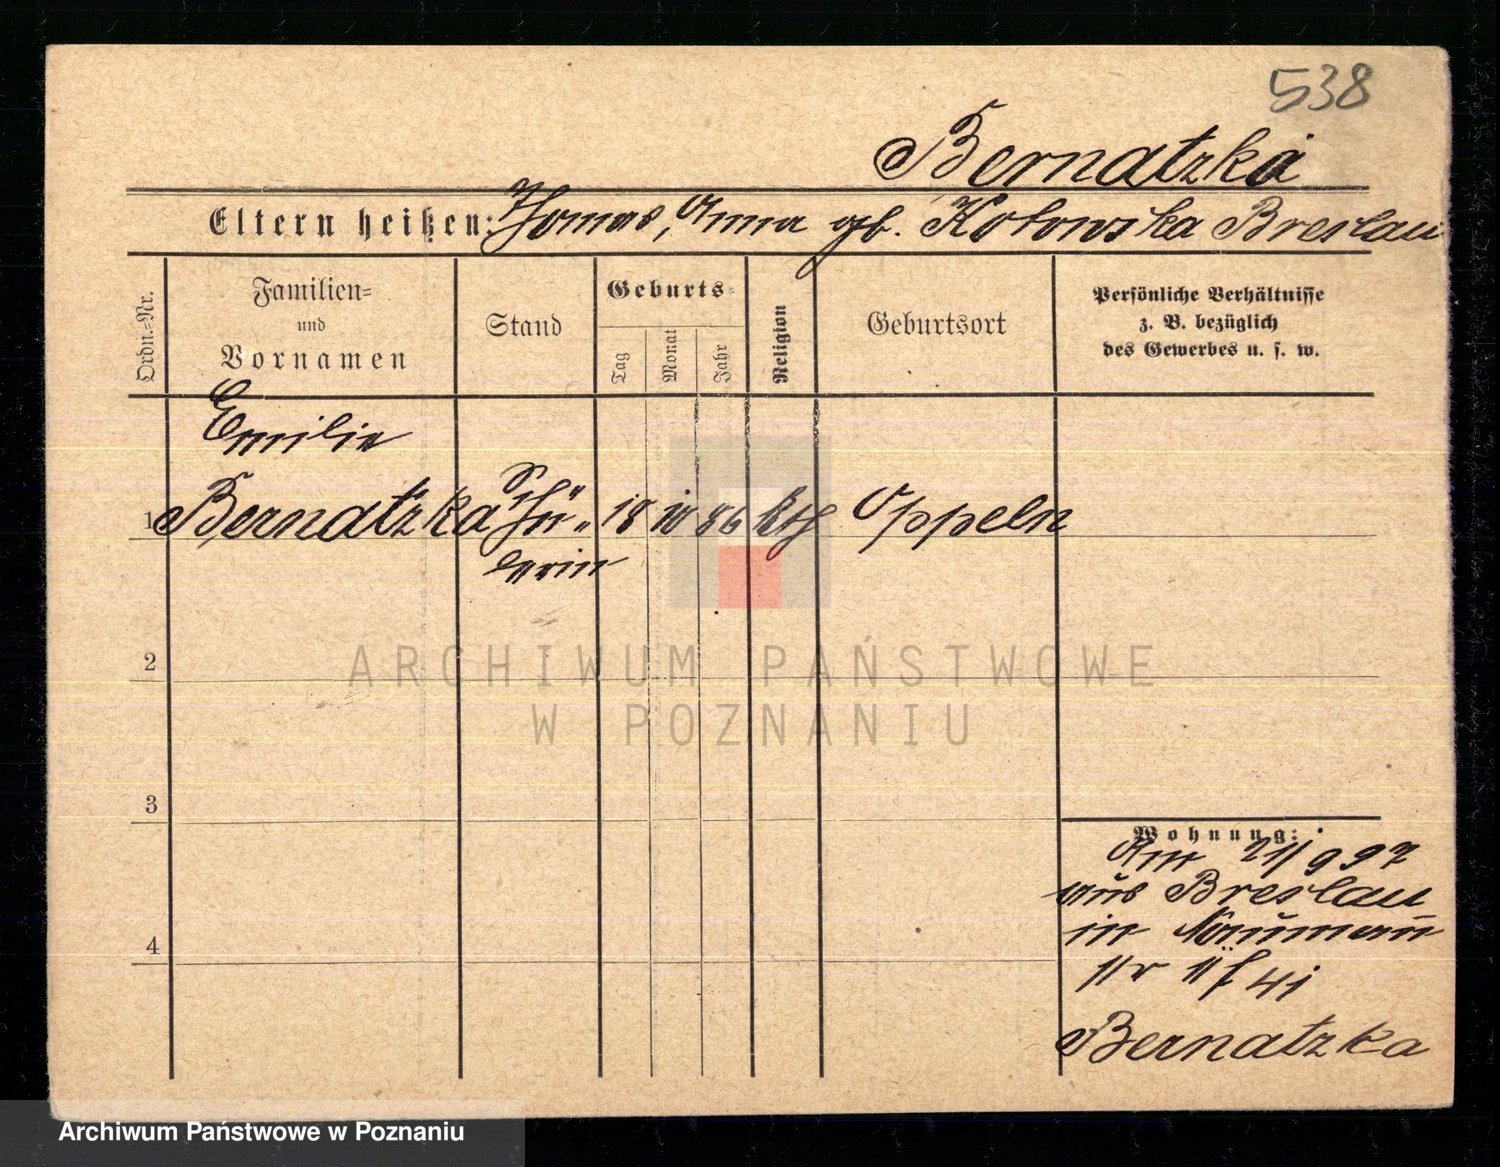 538
Bernatzka
Eltern heißen: Thomas, Anna gb. Kotowska Breslau
Ordn.=Nr.
Familien=
und
Vornamen
Stand
Geburts=
Tag
Monat
Jahr
Religion
Geburtsort
Persönliche Verhältnisse
z. B. bezüglich
des Gewerbes u. s. w.
Emilie
1 Bernatzka Schü= 18 10 86 kth Oppeln
lerin
2
3
4
Wohnung:
Am 21/9 97
aus Breslau
in Naumann
str
Bernatzka
ARCHIWUM PAŃSTWOWE
W POZNANIU
Archiwum Państwowe w Poznaniu